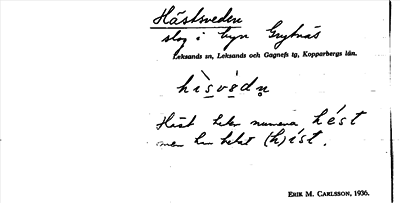 Hästsveden
skog i byn Grytnäs
Leksands sn, Leksands och Gagnefs tg, Kopparbergs län.
hìsvèdn̥
Häst heter numera hést
men har hetat (h)ést.
ERIK M. CARLSSON, 1936.